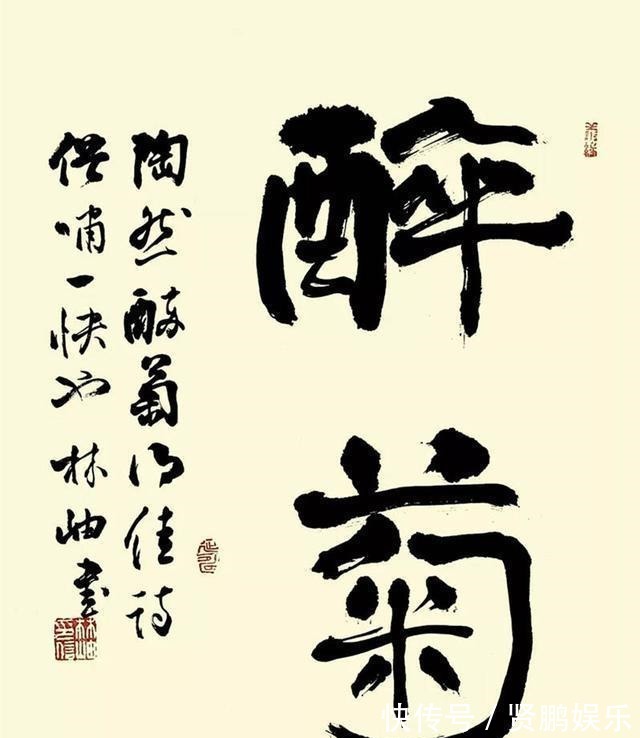 醉菊
陶然醉菊得佳诗
供哺一快也 林岫書
快传号 / 贤鹏娱乐